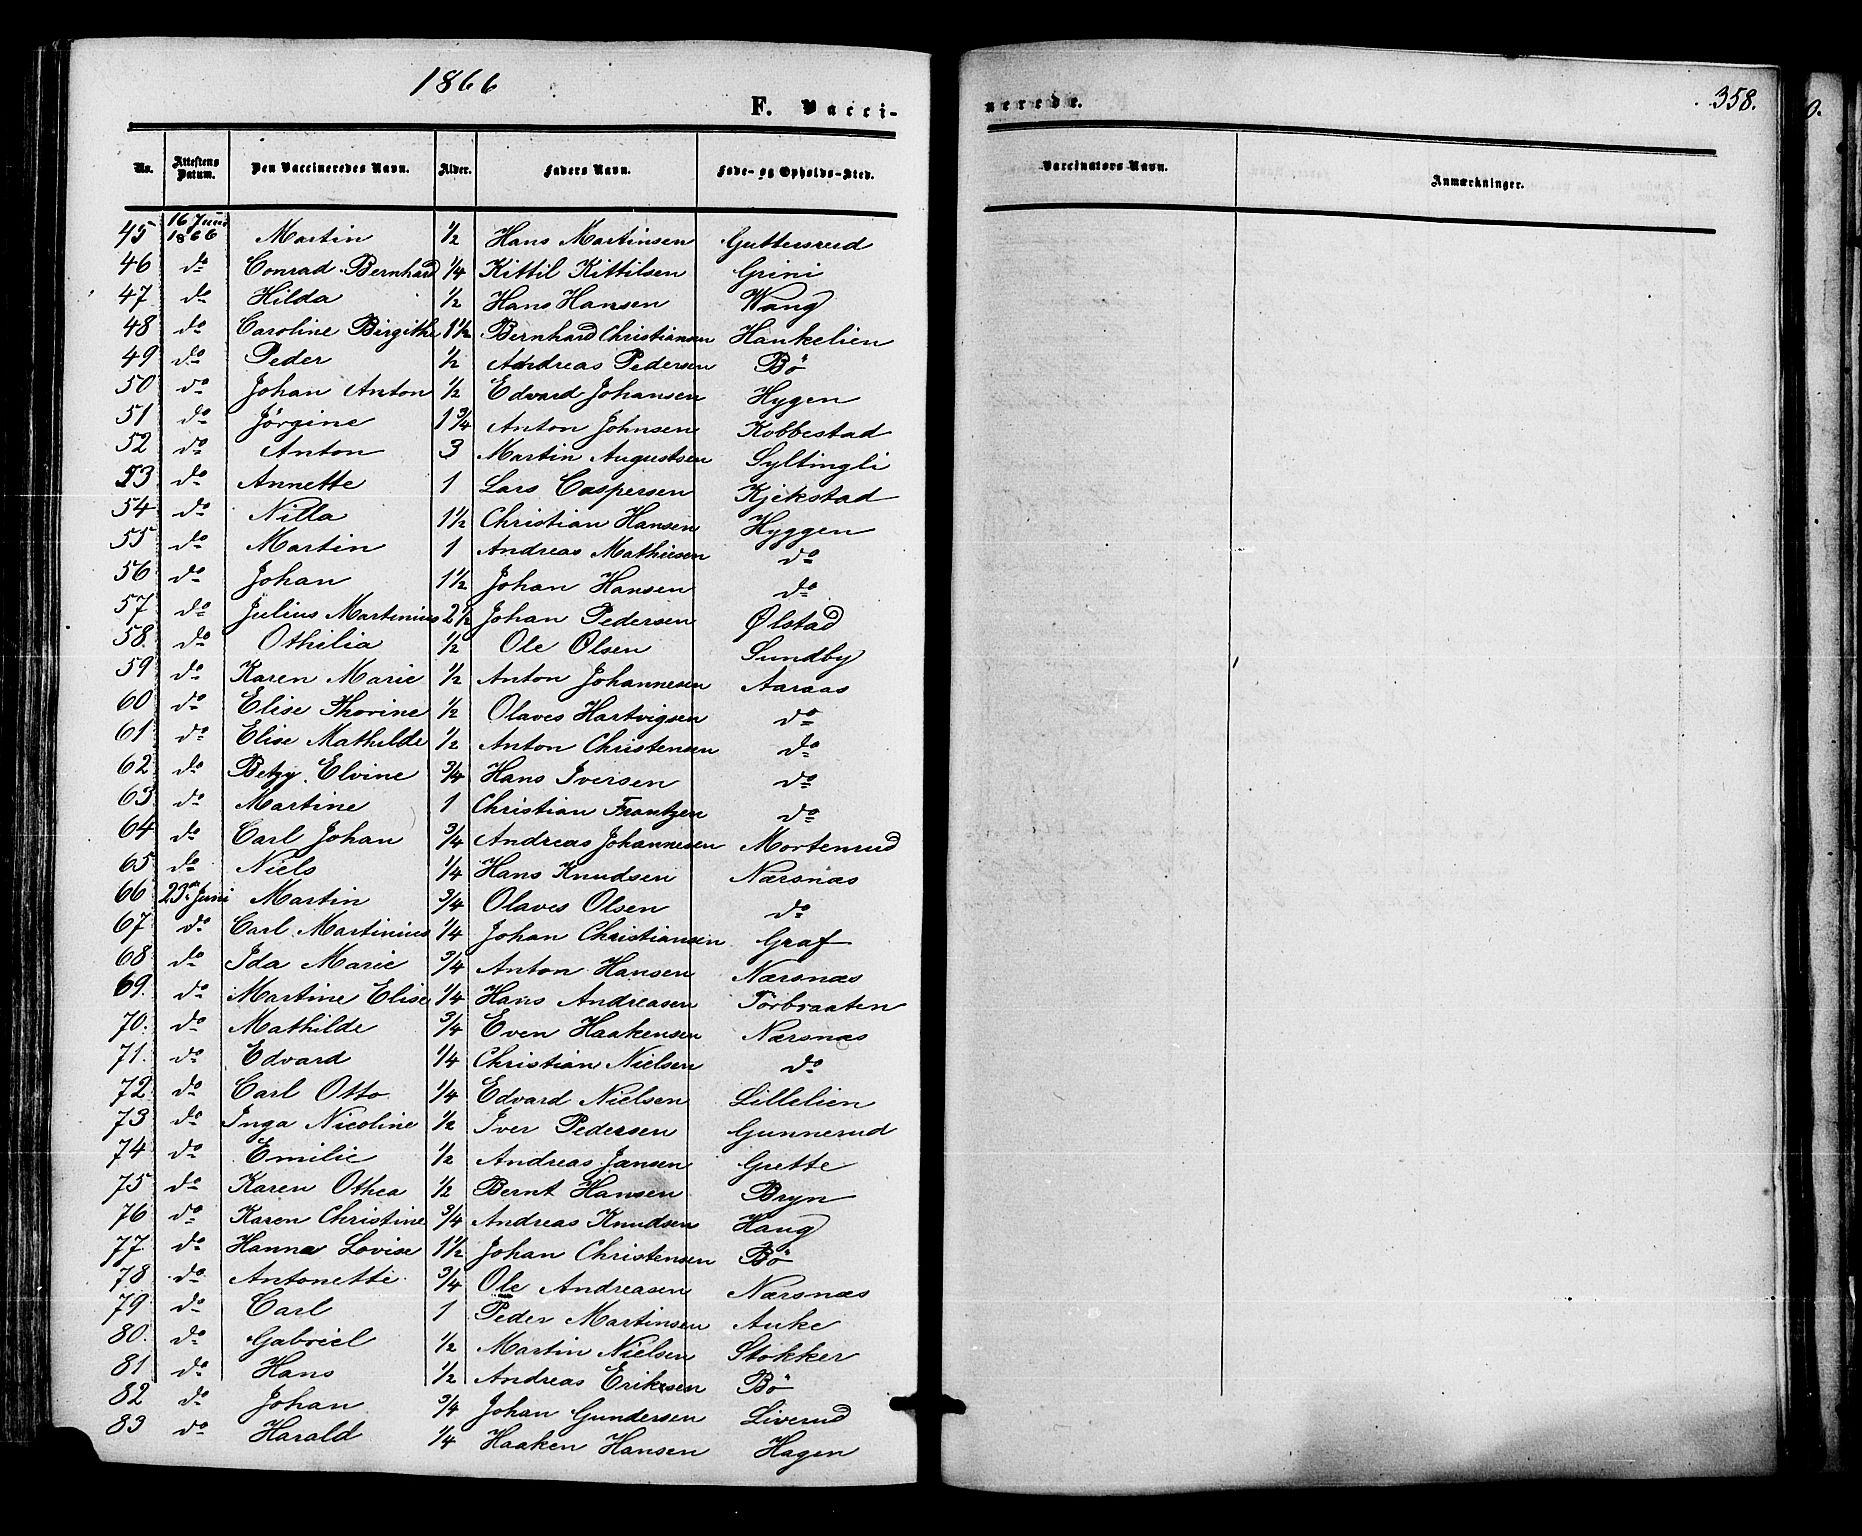 1866
F. Vacci-
No. Attestens Datum. Den Vaccineredes Navn. Alder. Faders Navn. Føde- og Opholds-Sted.
45 16 Juni 1866 Martin 1/2 Hans Martinsen Guttersrud
46 do Conrad Bernhard 1/4 Kittil Kittilsen Grini
47 do Hilda 1/2 Hans Hansen Wang
48 do Caroline Birgithe 1 1/2 Bernhard Christiansen Haukelien
49 do Peder 1/2 Andreas Pedersen Bö
50 do Johan Anton 1/2 Edvard Johansen Hygen
51 do Jørgine 1 3/4 Anton Johnsen Kobbestad
52 do Anton 3 Martin Augustsen Syltingli
53 do Annette 1 Lars Caspersen Kjekstad
54 do Nilla 1 1/2 Christian Hansen Hyggen
55 do Martin 1 Andreas Mathiesen do
56 do Johan 1 1/2 Johan Hansen do
57 do Julius Martinius 2 1/2 Johan Pedersen Ølstad
58. do Othilia 1/2 Ole Olsen Sundby
59 do Karen Marie 1/2 Anton Johannesen Aaraas
60 do Elise Thorine 1/2 Olaves Hartvigsen do
61 do Elise Mathilde 1/2 Anton Christensen do
62 do Betzy Elvine 3/4 Hans Iversen do
63 do Martine 1 Christian Frantzen do
64 do Carl Johan 3/4 Andreas Johannesen Mortensrud
65 do Niels 1/4 Hans Knudsen Nærsnæs
66 23de Juni Martin 3/4 Olaves Olsen do
67 do Carl Martinius 1/4 Johan Christiansen Graf
68 do Ida Marie 3/4 Anton Hansen Nærsnæs
69. do Martine Elise 1/4 Hans Andreasen Torbraaten
70. do Mathilde 3/4 Even Haakensen Nærsnæs
71. do Edvard 1/4 Christian Nielsen do
72 do Carl Otto 1/4 Edvard Nielsen Lillelien
73 do Inga Nicoline 1/2 Iver Pedersen Gunnerud
74 do Emilie 1/2 Andreas Jansen Grette
75 do Karen Othea 1/2 Bernt Hansen Bryn
76 do Karen Christine 3/4 Andreas Knudsen Haug
77 do Hanna Lovise 1 1/2 Johan Christensen Bö
78 do Antonette 3/4 Ole Andreasen Nærsnæs
79 do Carl 1 Peder Martinsen Auke
80. do Gabriel 1/2 Martin Nielsen Stokker
81 do Hans 1/2 Andreas Eriksen Bö
82 do Johan 3/4 Johan Gundersen Liverud
83 do Harald 1/4 Haaken Hansen Hagen
358.
nerede.
Vaccinators Navn. Anmærkninger.